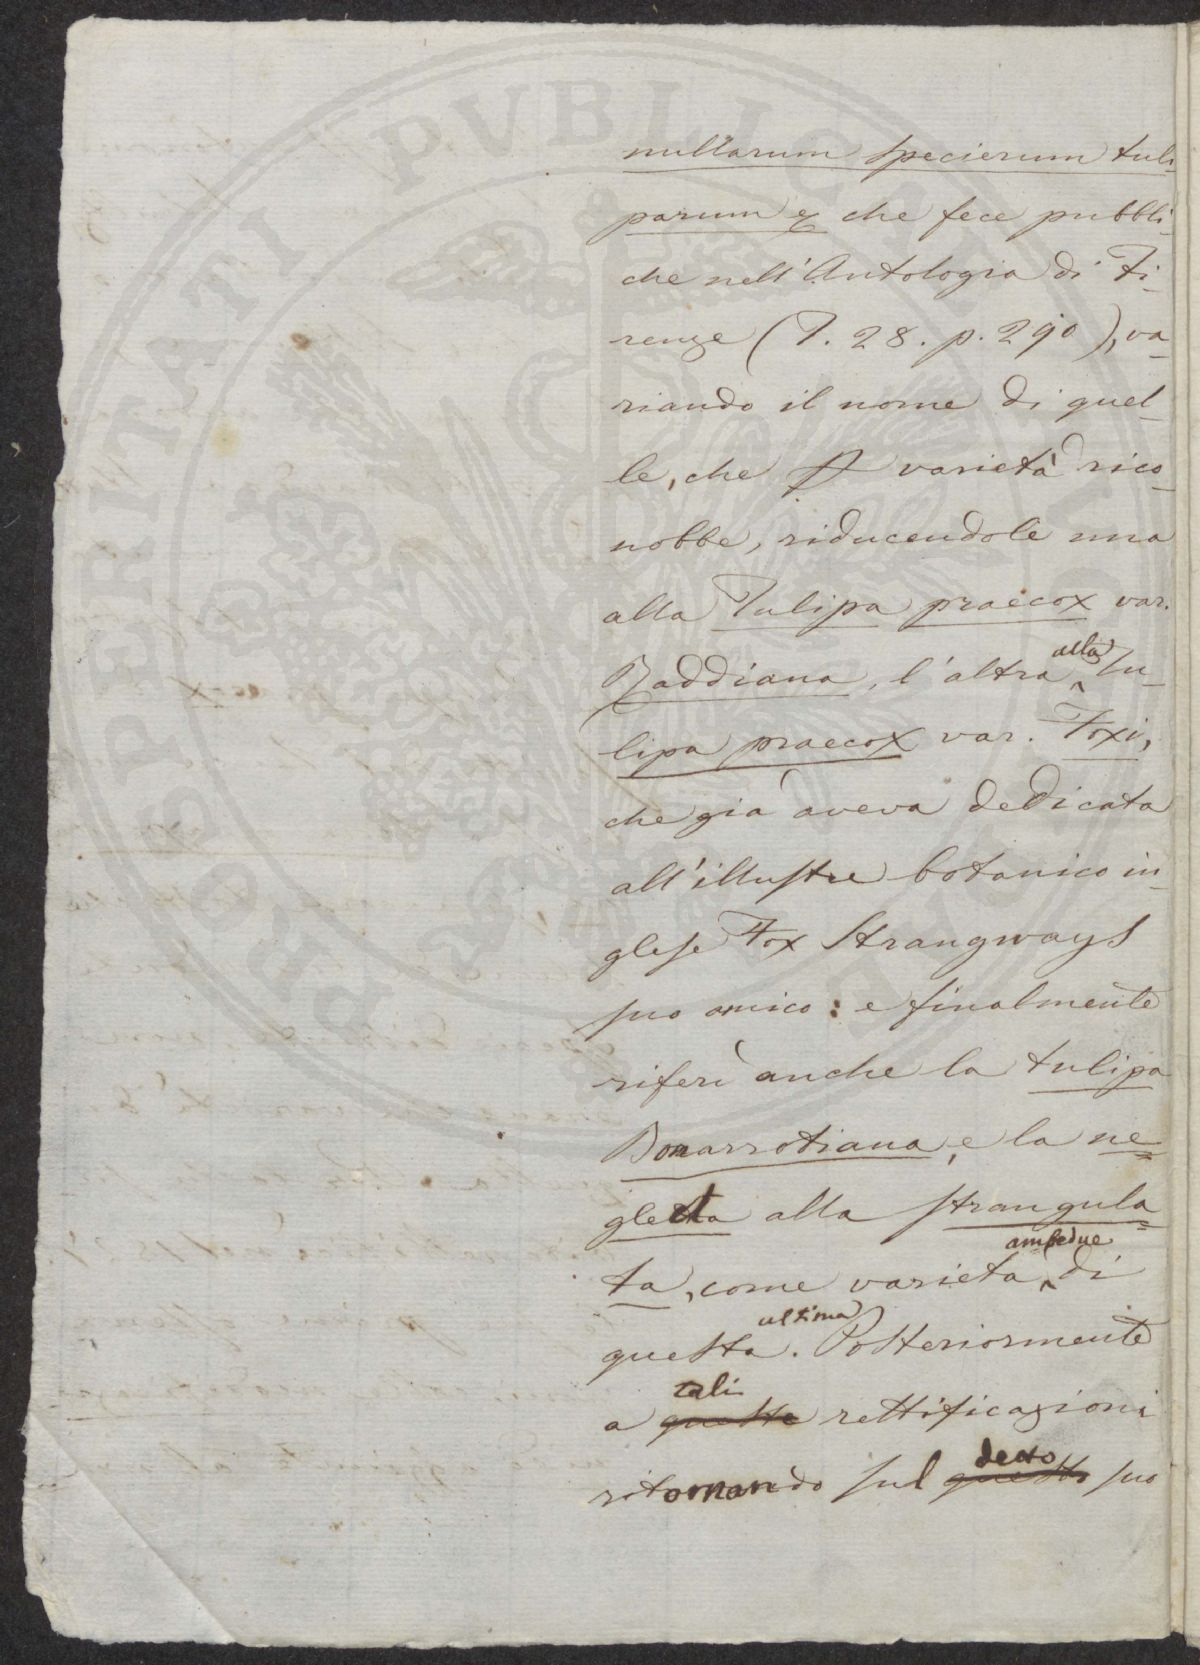 nullarum specierum tuli-
parum & che fece pubbli-
che nell'Antologia di Fi-
renze (T. 28. p. 290), va-
riando il nome di quel-
le, che varietà rico-
nobbe, riducendole una
alla Tulipa praecox var.
Raddiana, l'altra alla Tu-
lipa praecox var. Foxi,
che già aveva dedicata
all'illustre botanico in-
glese Fox Strangways
suo amico: e finalmente
riferì anche la tulipa
Bonarrotiana, e la ne-
glecta alla strangula-
ta, come varietà ambedue di
questa ultima. Posteriormente
a queste tali rettificazioni
ritornando sul questo detto suo
PROSPERITATI PVBLICAE